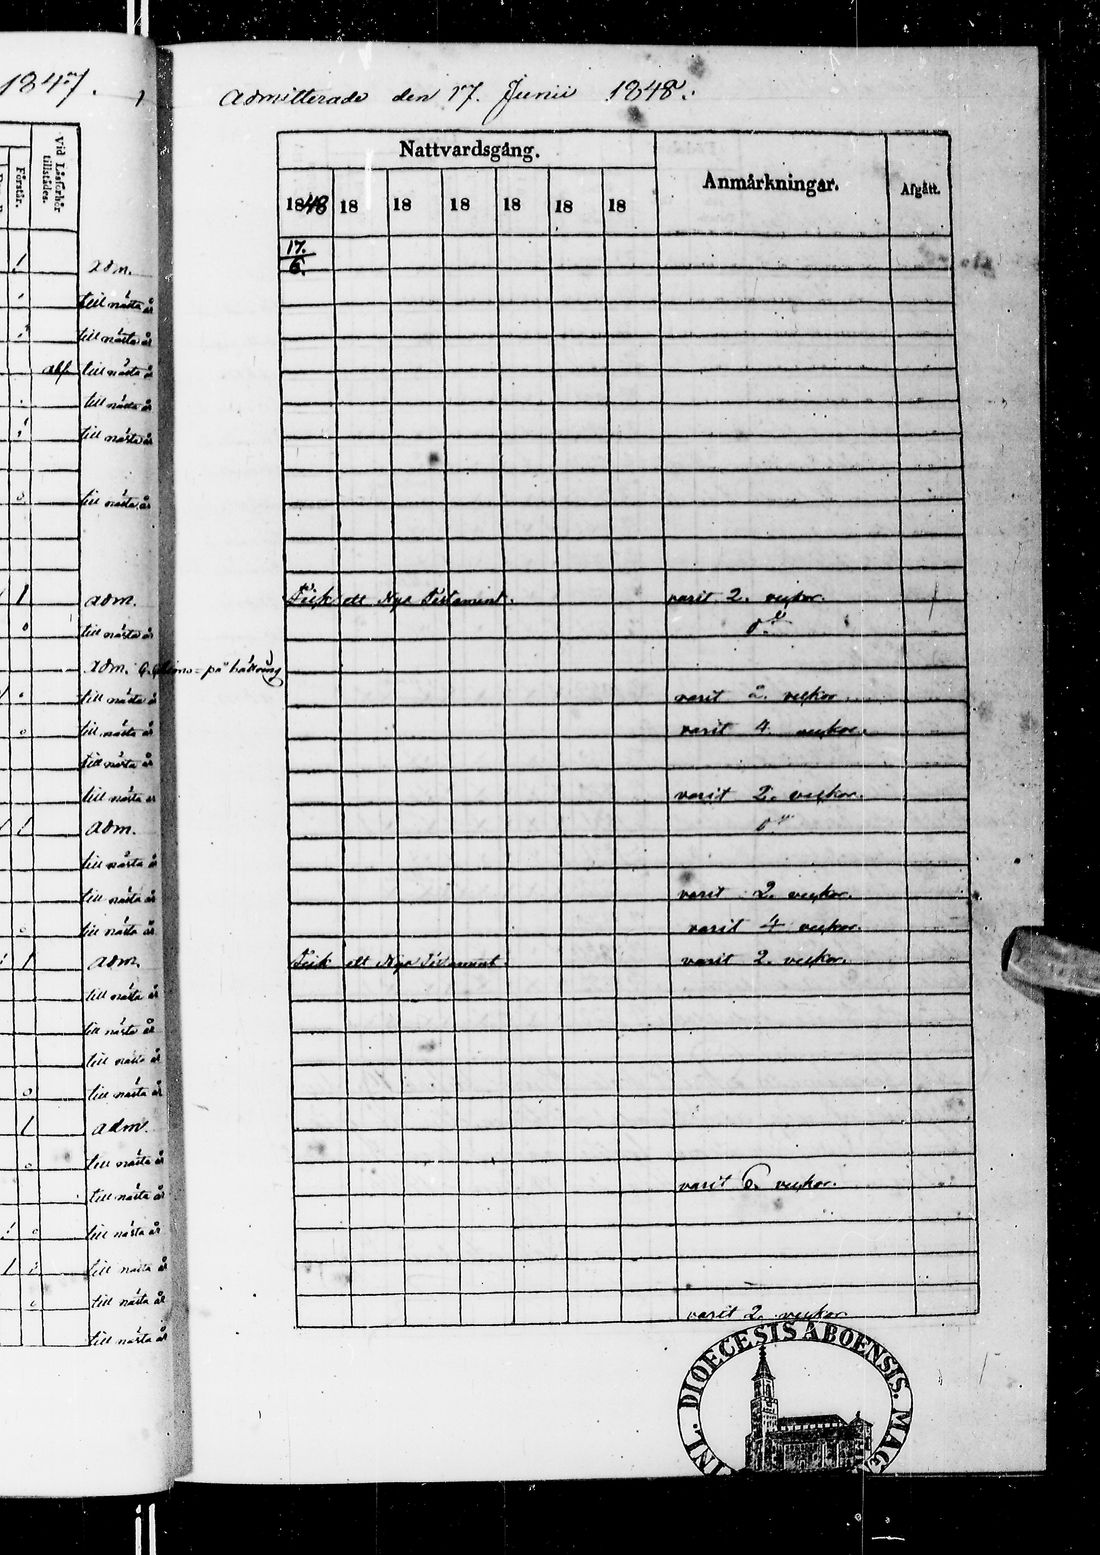 1847.
Admitterade den 17. Junii 1848.
Vid Läsförhör tillstädes.
Förstår.
Nattvardsgång.
Anmärkningar.
Afgått.
1848 18 18 18 18 18 18
17./6.
adm.
till nästa år
till nästa år
till nästa år
till nästa år
till nästa år
till nästa år
adm. Fick ett Nya Testament. varit 2. veckor.
till nästa år d:o
adm. på bättring
till nästa år varit 2. veckor.
till nästa år varit 4 veckor.
till nästa år
till nästa år varit 2. veckor.
adm. d:o
till nästa år
till nästa år varit 2. veckor.
till nästa år varit 4 veckor.
adm. Fick ett Nya Testament. varit 2. veckor.
till nästa år
till nästa år
till nästa år
till nästa år
adm.
till nästa år
till nästa år varit 6. veckor.
till nästa år
till nästa år
till nästa år
till nästa år varit 2. veckor
DIOECESIS ABOENSIS. MAG
INL.